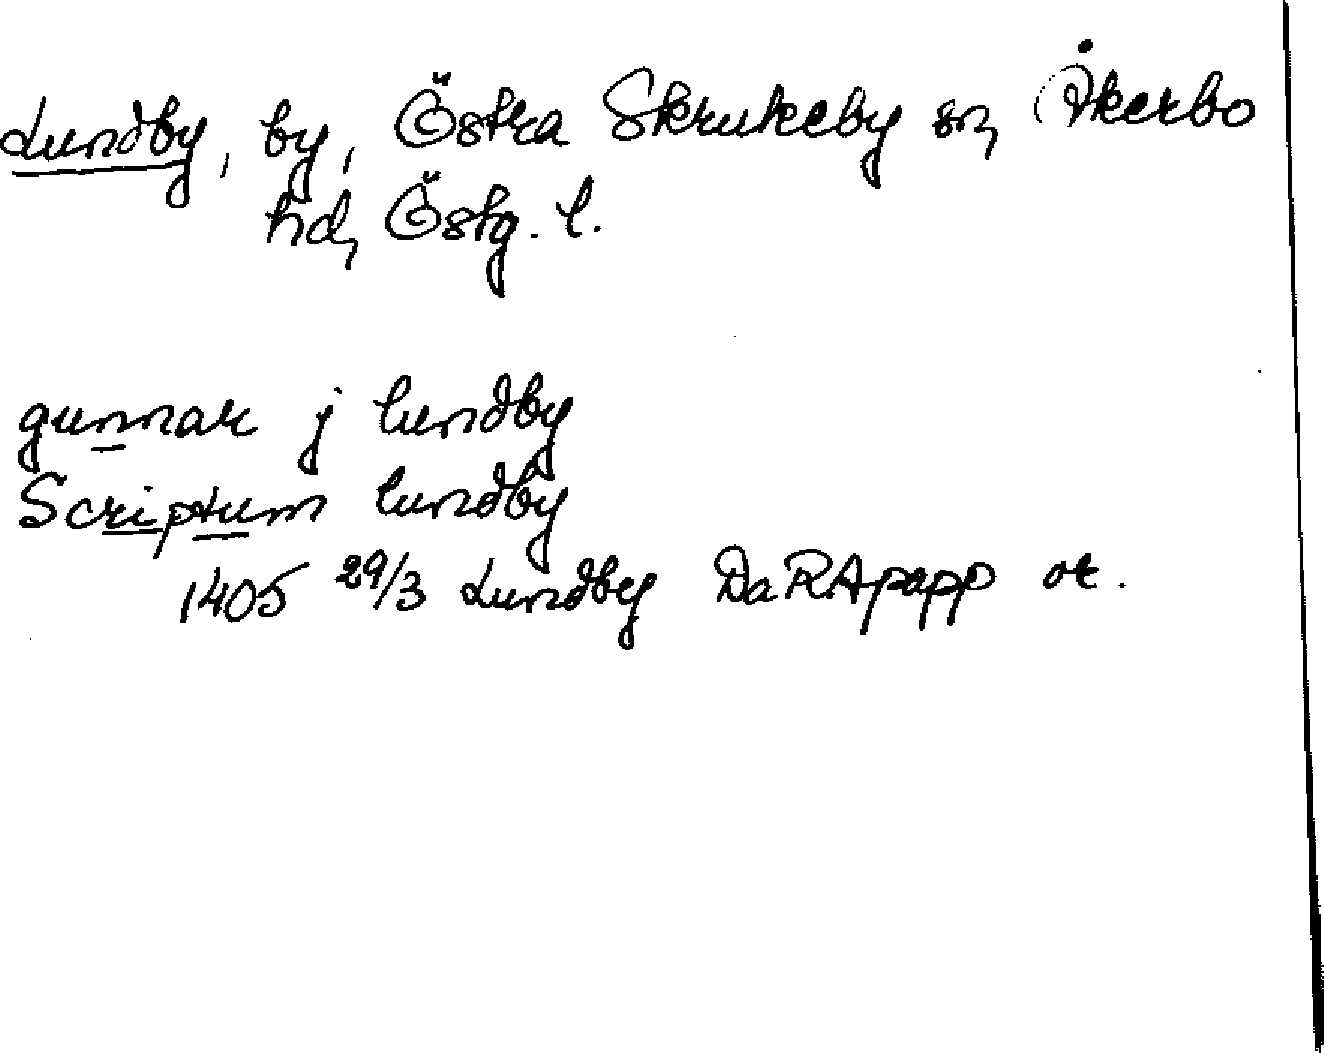 Lundby, by, Östra Skrukeby sn, Åkerbo
hd, Östg. l.
gunnar j lundby
Scriptum lundby
1405 29/3 Lundby DaRApapp or.